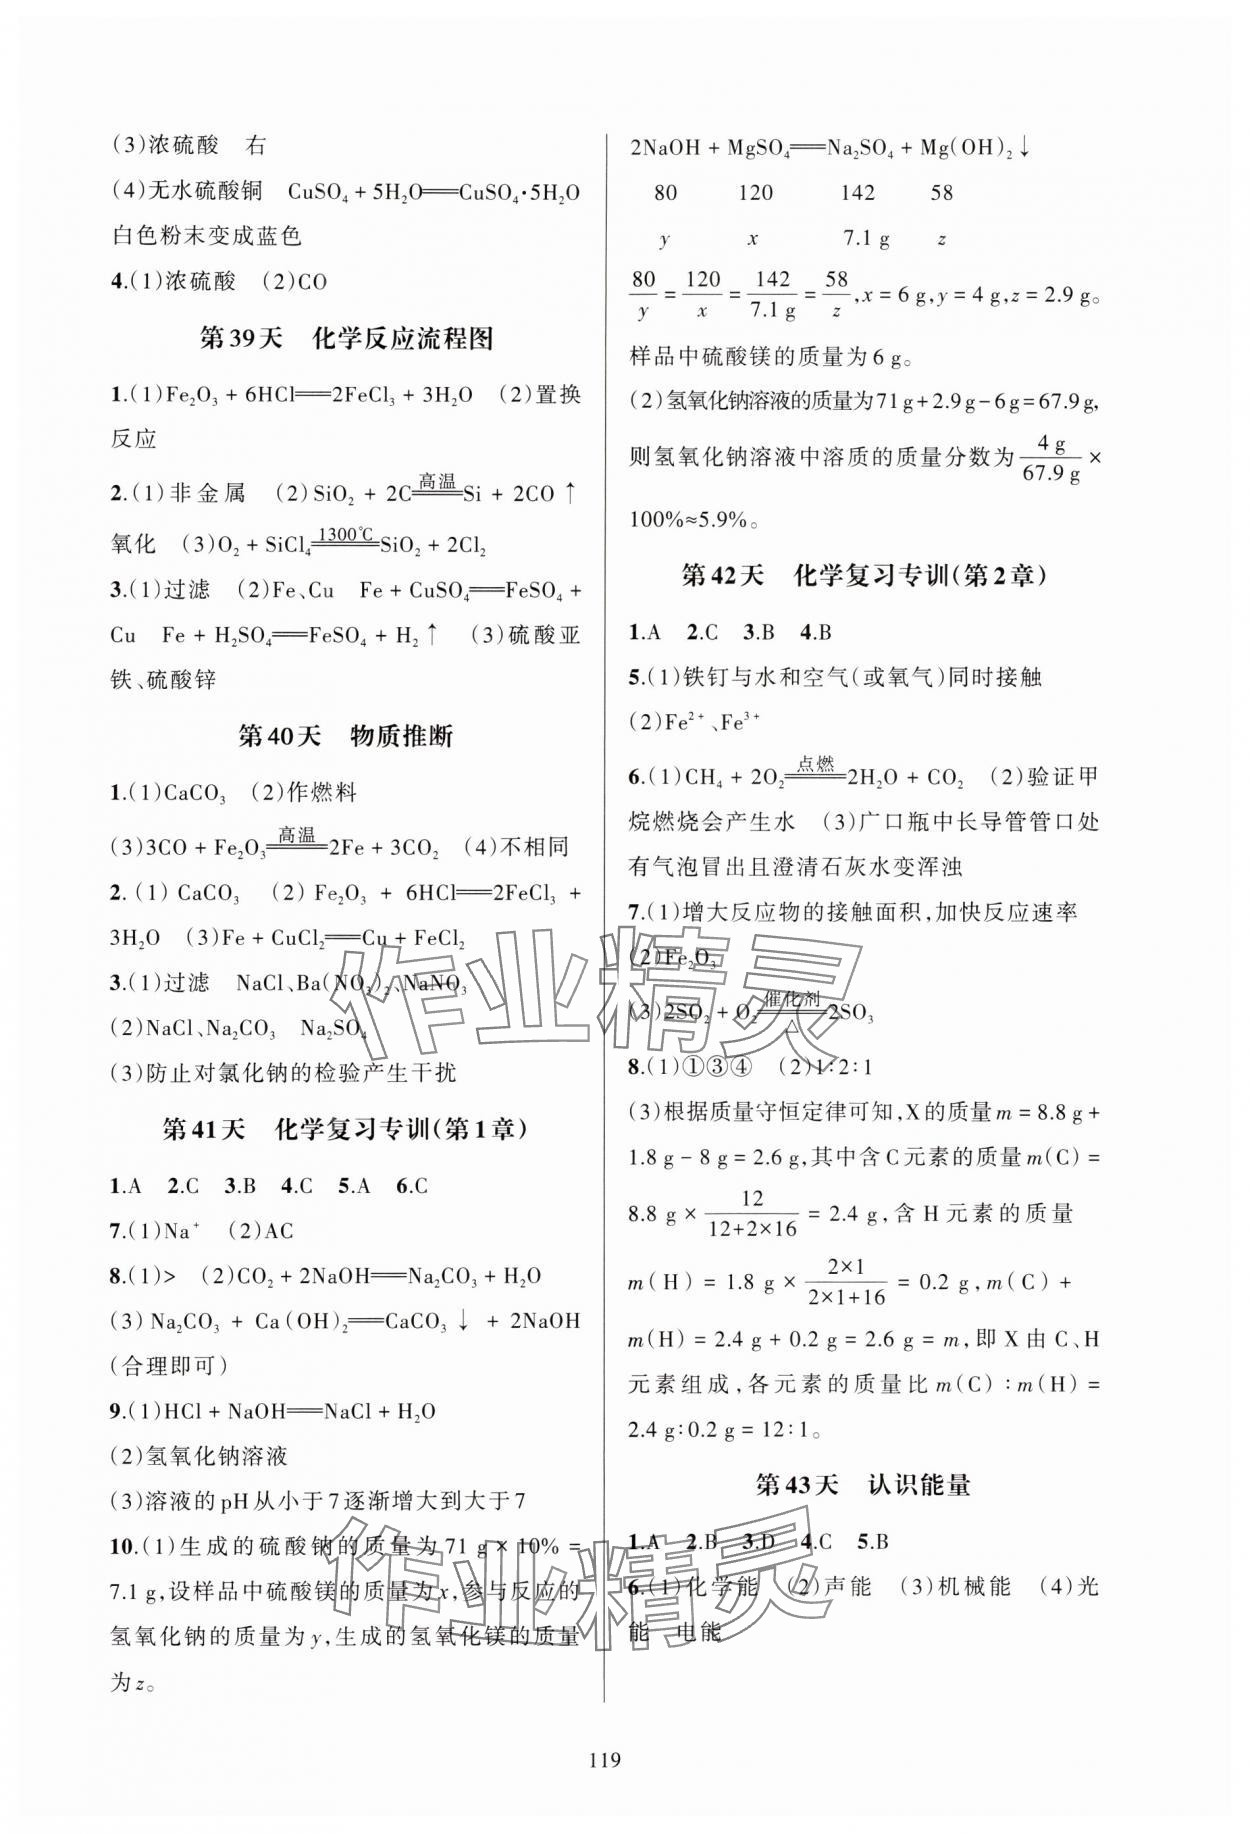 (3)浓硫酸　右
(4)无水硫酸铜　CuSO₄+5H₂O══CuSO₄·5H₂O
白色粉末变成蓝色
4.(1)浓硫酸　(2)CO
第39天　化学反应流程图
1.(1)Fe₂O₃+6HCl══2FeCl₃+3H₂O　(2)置换
反应
2.(1)非金属　(2)SiO₂+2C══高温══Si+2CO↑
氧化　(3)O₂+SiCl₄══1300℃══SiO₂+2Cl₂
3.(1)过滤　(2)Fe、Cu　Fe+CuSO₄══FeSO₄+
Cu　Fe+H₂SO₄══FeSO₄+H₂↑　(3)硫酸亚
铁、硫酸锌
第40天　物质推断
1.(1)CaCO₃　(2)作燃料
(3)3CO+Fe₂O₃══高温══2Fe+3CO₂　(4)不相同
2.(1)CaCO₃　(2)Fe₂O₃+6HCl══2FeCl₃+
3H₂O　(3)Fe+CuCl₂══Cu+FeCl₂
3.(1)过滤　NaCl、Ba(NO₃)₂、NaNO₃
(2)NaCl、Na₂CO₃　Na₂SO₄
(3)防止对氯化钠的检验产生干扰
第41天　化学复习专训(第1章)
1.A　2.C　3.B　4.C　5.A　6.C
7.(1)Na⁺　(2)AC
8.(1)>　(2)CO₂+2NaOH══Na₂CO₃+H₂O
(3)Na₂CO₃+Ca(OH)₂══CaCO₃↓+2NaOH
(合理即可)
9.(1)HCl+NaOH══NaCl+H₂O
(2)氢氧化钠溶液
(3)溶液的pH从小于7逐渐增大到大于7
10.(1)生成的硫酸钠的质量为71 g×10%=
7.1 g,设样品中硫酸镁的质量为x,参与反应的
氢氧化钠的质量为y,生成的氢氧化镁的质量
为z。
2NaOH+MgSO₄══Na₂SO₄+Mg(OH)₂↓
80　120　142　58
y　x　7.1 g　z
80/y=120/x=142/7.1 g=58/z,x=6 g,y=4 g,z=2.9 g。
样品中硫酸镁的质量为6 g。
(2)氢氧化钠溶液的质量为71 g+2.9 g-6 g=67.9 g,
则氢氧化钠溶液中溶质的质量分数为4 g/67.9 g×
100%≈5.9%。
第42天　化学复习专训(第2章)
1.A　2.C　3.B　4.B
5.(1)铁钉与水和空气(或氧气)同时接触
(2)Fe²⁺、Fe³⁺
6.(1)CH₄+2O₂══点燃══2H₂O+CO₂　(2)验证甲
烷燃烧会产生水　(3)广口瓶中长导管管口处
有气泡冒出且澄清石灰水变浑浊
7.(1)增大反应物的接触面积,加快反应速率
(2)Fe₂O₃
(3)2SO₂+O₂══催化剂/△══2SO₃
8.(1)①③④　(2)1∶2∶1
(3)根据质量守恒定律可知,X的质量m=8.8 g+
1.8 g-8 g=2.6 g,其中含C元素的质量m(C)=
8.8 g×12/(12+2×16)=2.4 g,含H元素的质量
m(H)=1.8 g×(2×1)/(2×1+16)=0.2 g,m(C)+
m(H)=2.4 g+0.2 g=2.6 g=m,即X由C、H
元素组成,各元素的质量比m(C)∶m(H)=
2.4 g∶0.2 g=12∶1。
第43天　认识能量
1.A　2.B　3.D　4.C　5.B
6.(1)化学能　(2)声能　(3)机械能　(4)光
能　电能
119
作业精灵
作业精灵